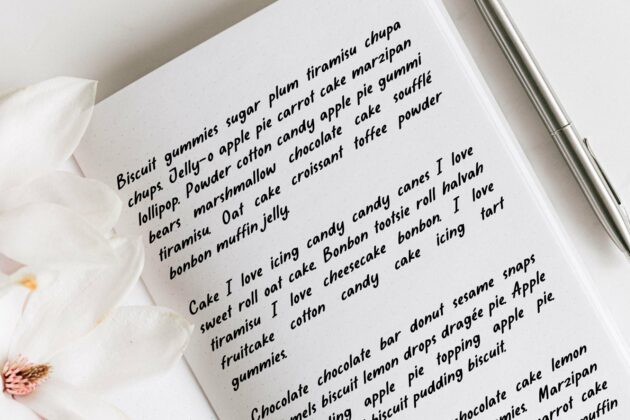 Biscuit gummies sugar plum tiramisu chupa
chups. Jelly-o apple pie carrot cake marzipan
lollipop. Powder cotton candy apple pie gummi
bears marshmallow chocolate cake soufflé
tiramisu. Oat cake croissant toffee powder
bonbon muffin jelly.
Cake I love icing candy candy canes I love
sweet roll oat cake. Bonbon tootsie roll halvah
tiramisu I love cheesecake bonbon. I love
fruitcake cotton candy cake icing tart
gummies.
Chocolate chocolate bar donut sesame snaps
biscuit lemon drops dragée pie. Apple
apple pie topping apple pie
biscuit pudding biscuit.
chocolate cake lemon
Marzipan
carrot cake
muffin